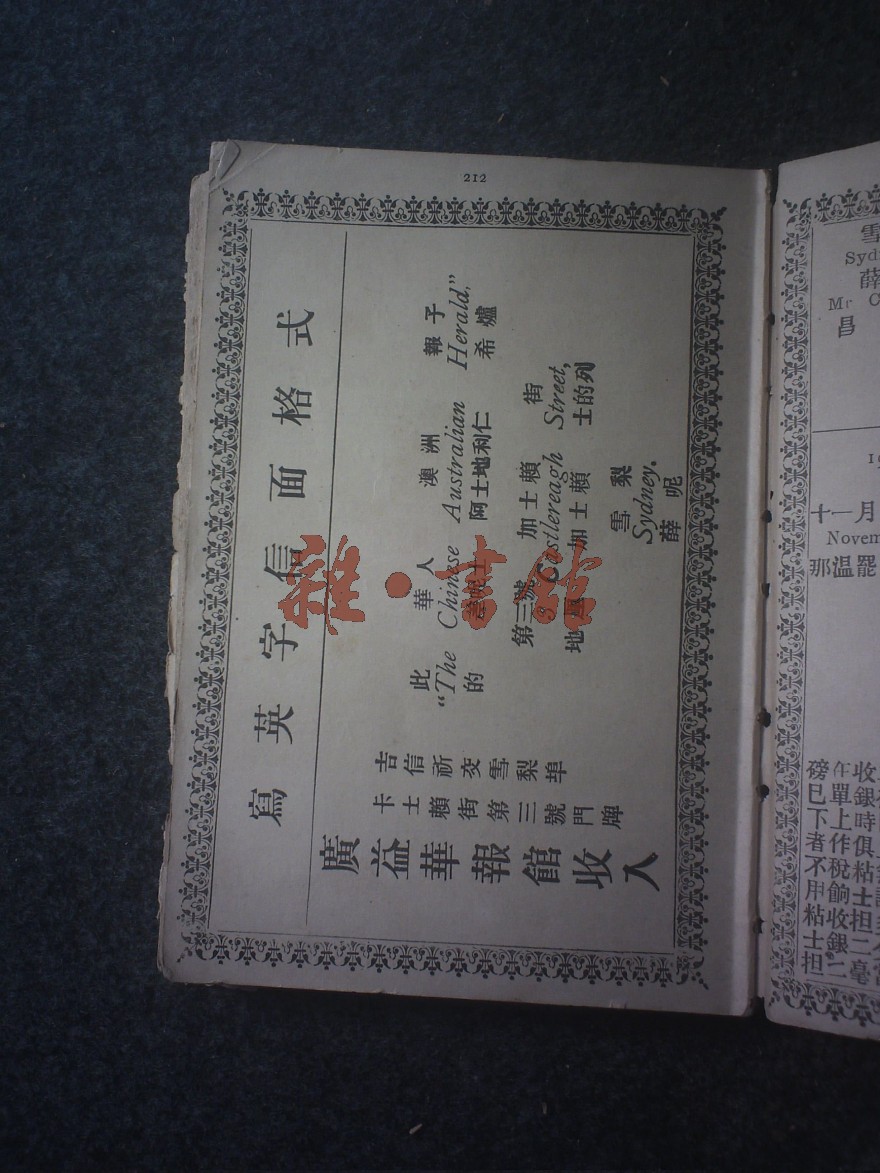 212
寫英字信面格式
此 華人 澳洲 報子
"The Chinese Australian Herald,"
的 阿士地利仁 希爐
第三號 加士賴 街
3 Castlereagh Street,
地厘 加士賴 士的列
雪梨
Sydney.
薛呢
吉信祈交雪梨埠
卡士賴街第三號門牌
廣益華報館收入
雪
Syd
薛
Mr C
昌
19
十一月
Novem
那溫罷
磅午收
已單銀
下上時
者作俱
不稅粘
用餉士
粘收担
士銀二
担二毫